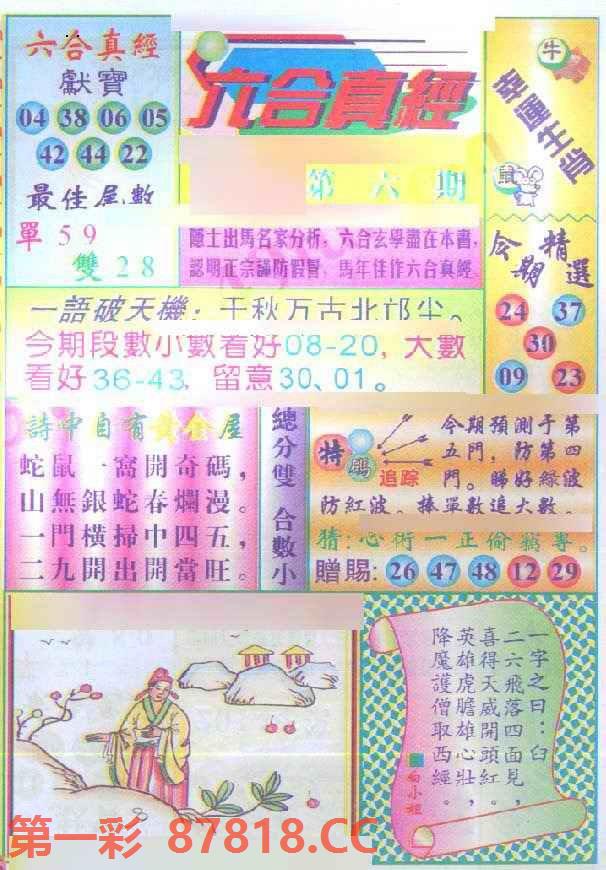 六合真經
獻寶
04 38 06 05
42 44 22
最佳尾數
單59
雙28
六合真經
第六期
隱士出馬名家分析，六合玄學盡在本書，
認明正宗謹防假冒，馬年佳作六合真經
牛
幸運生肖
鼠
今期精選
24 37
30
09 23
一語破天機：千秋万古北邙尘。
今期段數小數看好08-20，大數
看好36-43，留意30、01。
詩中自有黃金屋
蛇鼠一窩開奇碼，
山無銀蛇春爛漫。
一門橫掃中四五，
二九開出開當旺。
總分雙 合數小
特碼
追踪
今期預測于第
五門，防第四
門。睇好綠波
防紅波。捧單數追大數。
猜：心術一正偷竊專。
贈賜：26 47 48 12 29
一字之曰：臼
二六飛落四面見，
喜得天威開頭紅。
英雄虎膽雄心壯，
降魔護僧取西經。
白小姐
第一彩 87818.CC